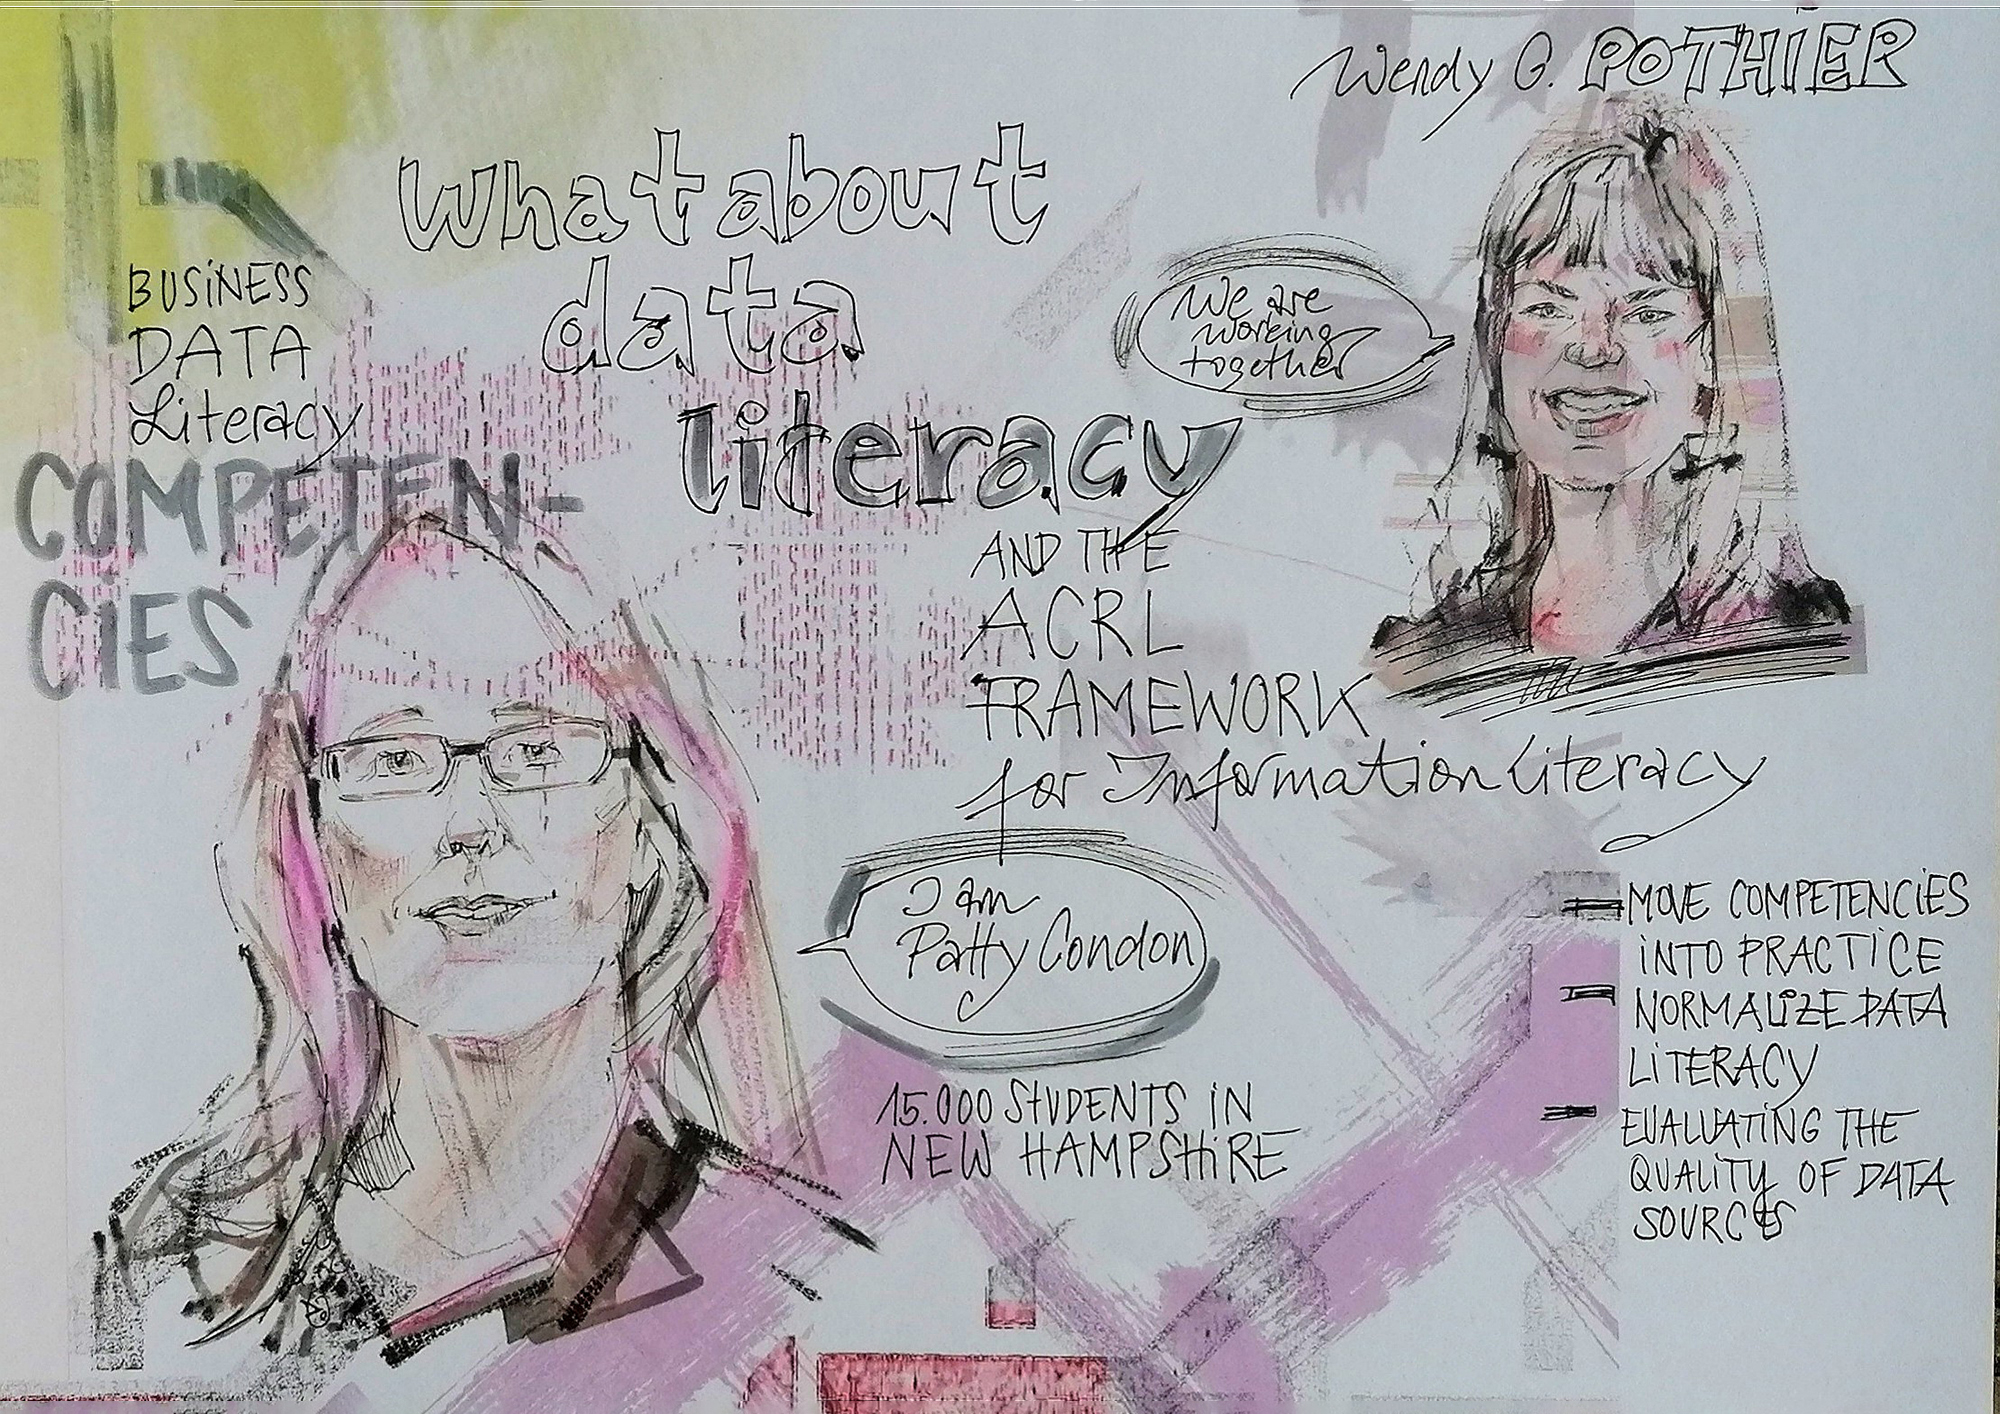 Wendy G. POTHIER
what about
data
literacy
AND THE
ACRL
FRAMEWORK
for Information Literacy
BUSINESS
DATA
Literacy
COMPETEN-
CIES
We are
working
together
I am
Patty Condon
15.000 STUDENTS IN
NEW HAMPSHIRE
MOVE COMPETENCIES
INTO PRACTICE
NORMALIZE DATA
LITERACY
EVALUATING THE
QUALITY OF DATA
SOURCES